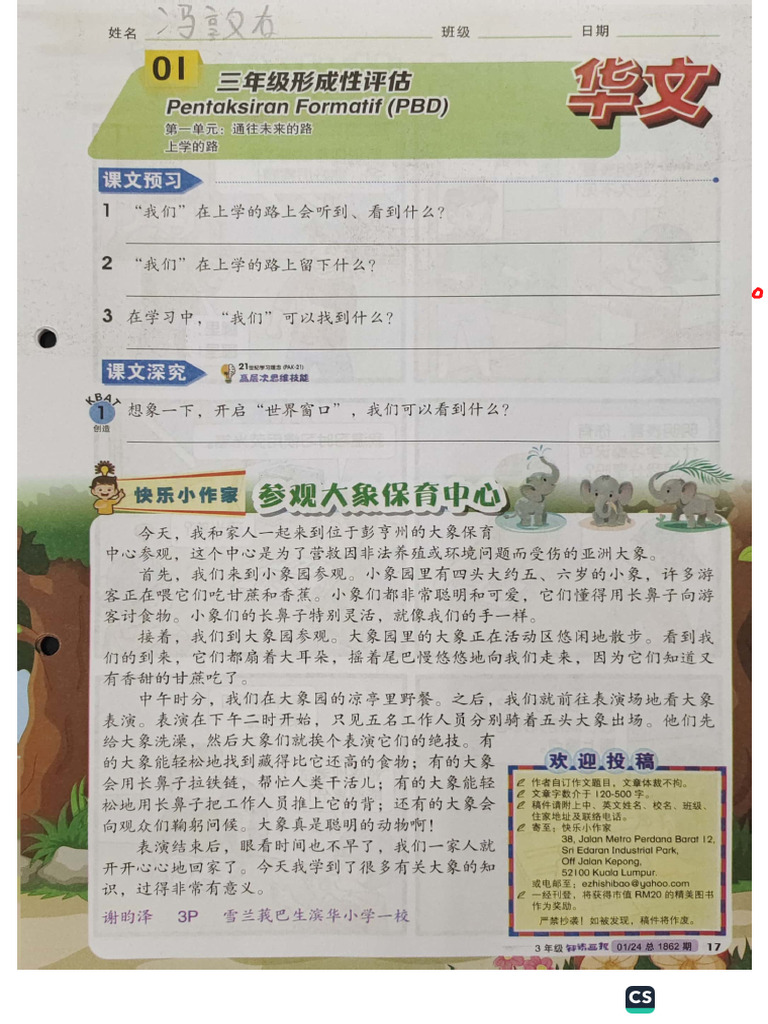 姓名 冯 文 班级 日期
01
三年级形成性评估
Pentaksiran Formatif (PBD)
第一单元：通往未来的路
上学的路
华文
课文预习
1 “我们”在上学的路上会听到、看到什么？
2 “我们”在上学的路上留下什么？
3 在学习中，“我们”可以找到什么？
课文深究
21世纪学习理念 (PAK-21)
高层次思维技能
KBAT
1 想象一下，开启“世界窗口”，我们可以看到什么？
创造
快乐小作家
参观大象保育中心
今天，我和家人一起来到位于彭亨州的大象保育
中心参观，这个中心是为了营救因非法养殖或环境问题而受伤的亚洲大象。
首先，我们来到小象园参观。小象园里有四头大约五、六岁的小象，许多游
客正在喂它们吃甘蔗和香蕉。小象们都非常聪明和可爱，它们懂得用长鼻子向游
客讨食物。小象们的长鼻子特别灵活，就像我们的手一样。
接着，我们到大象园参观。大象园里的大象正在活动区悠闲地散步。看到我
们的到来，它们都扇着大耳朵，摇着尾巴慢悠悠地向我们走来，因为它们知道又
有香甜的甘蔗吃了。
中午时分，我们在大象园的凉亭里野餐。之后，我们就前往表演场地看大象
表演。表演在下午二时开始，只见五名工作人员分别骑着五头大象出场。他们先
给大象洗澡，然后大象们就挨个表演它们的绝技。有
的大象能轻松地找到藏得比它还高的食物；有的大象
会用长鼻子拉铁链，帮忙人类干活儿；有的大象能轻
松地用长鼻子把工作人员推上它的背；还有的大象会
向观众们鞠躬问候。大象真是聪明的动物啊！
表演结束后，眼看时间也不早了，我们一家人就
开开心心地回家了。今天我学到了很多有关大象的知
识，过得非常有意义。
谢昀泽 3P 雪兰莪巴生滨华小学一校
欢迎投稿
作者自订作文题目，文章体裁不拘。
文章字数介于 120-500 字。
稿件请附上中、英文姓名、校名、班级、
住家地址及联络电话。
寄至：快乐小作家
38, Jalan Metro Perdana Barat 12,
Sri Edaran Industrial Park,
Off Jalan Kepong,
52100 Kuala Lumpur.
或电邮至：ezhishibao@yahoo.com
一经刊登，将获得市值 RM20 的精美图书
作为奖励。
严禁抄袭！如被发现，稿件将作废。
3 年级 知识画报 01/24 总 1862 期 17
CS